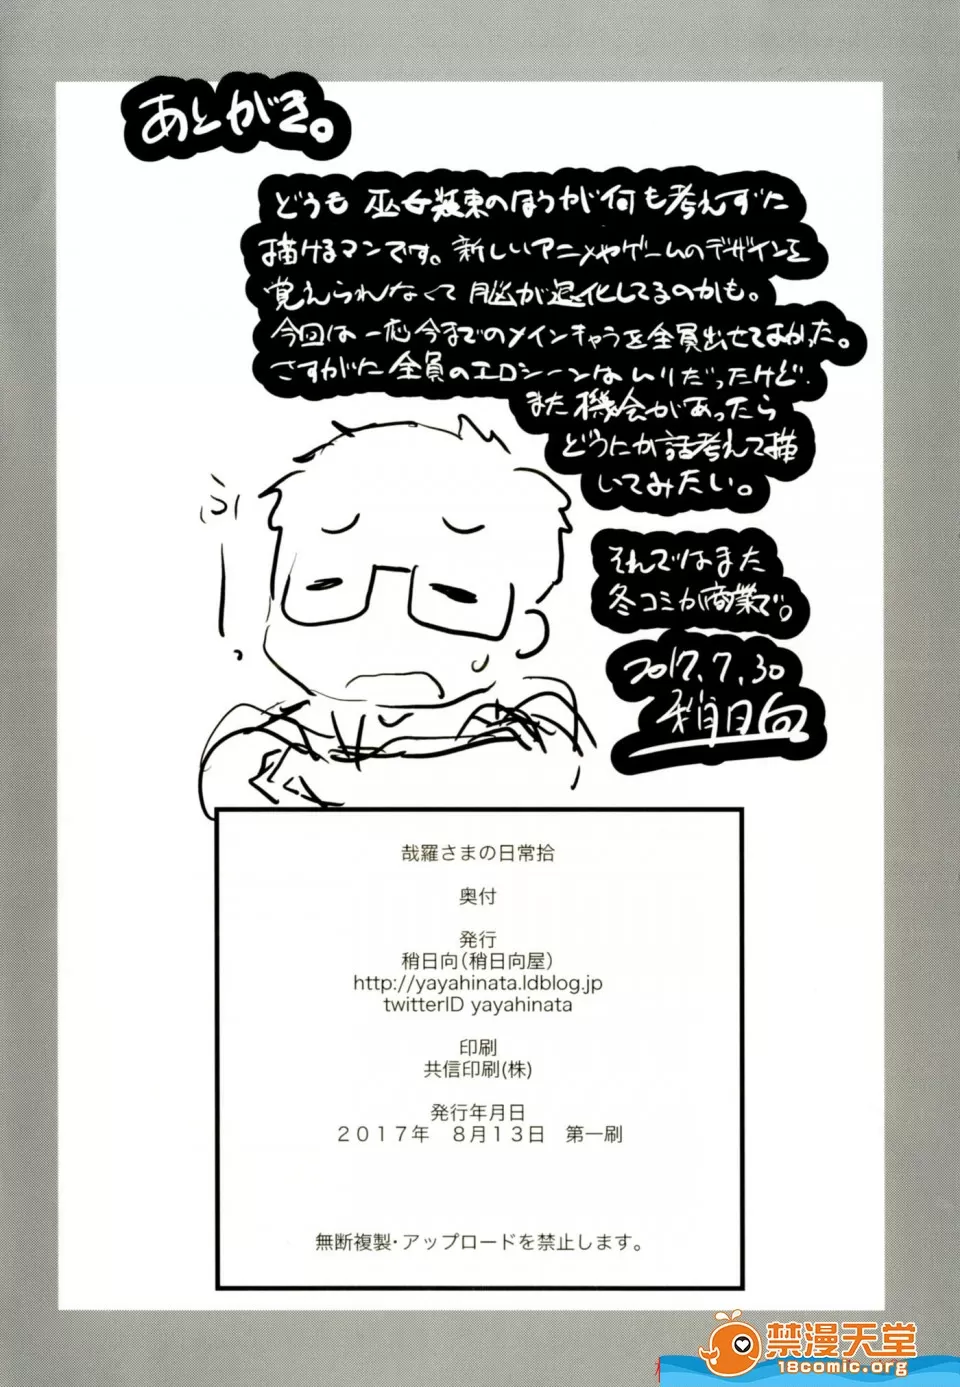 あとがき。
どうも 巫女装束のほうが何も考えずに
描けるマンです。新しいアニメやゲームのデザインを
覚えられなくて脳が退化してるのかも。
今回は一応今までのメインキャラを全員出せてよかった。
さすがに全員のエロシーンはムリだったけど、
また機会があったら
どうにか話考えて描
いてみたい。
ふぅ
それではまた
冬コミか商業で。
2017.7.30
稍日向
哉羅さまの日常拾
奥付
発行
稍日向(稍日向屋)
http://yayahinata.ldblog.jp
twitterID yayahinata
印刷
共信印刷(株)
発行年月日
2017年 8月13日 第一刷
無断複製・アップロードを禁止します。
禁漫天堂
18comic.org